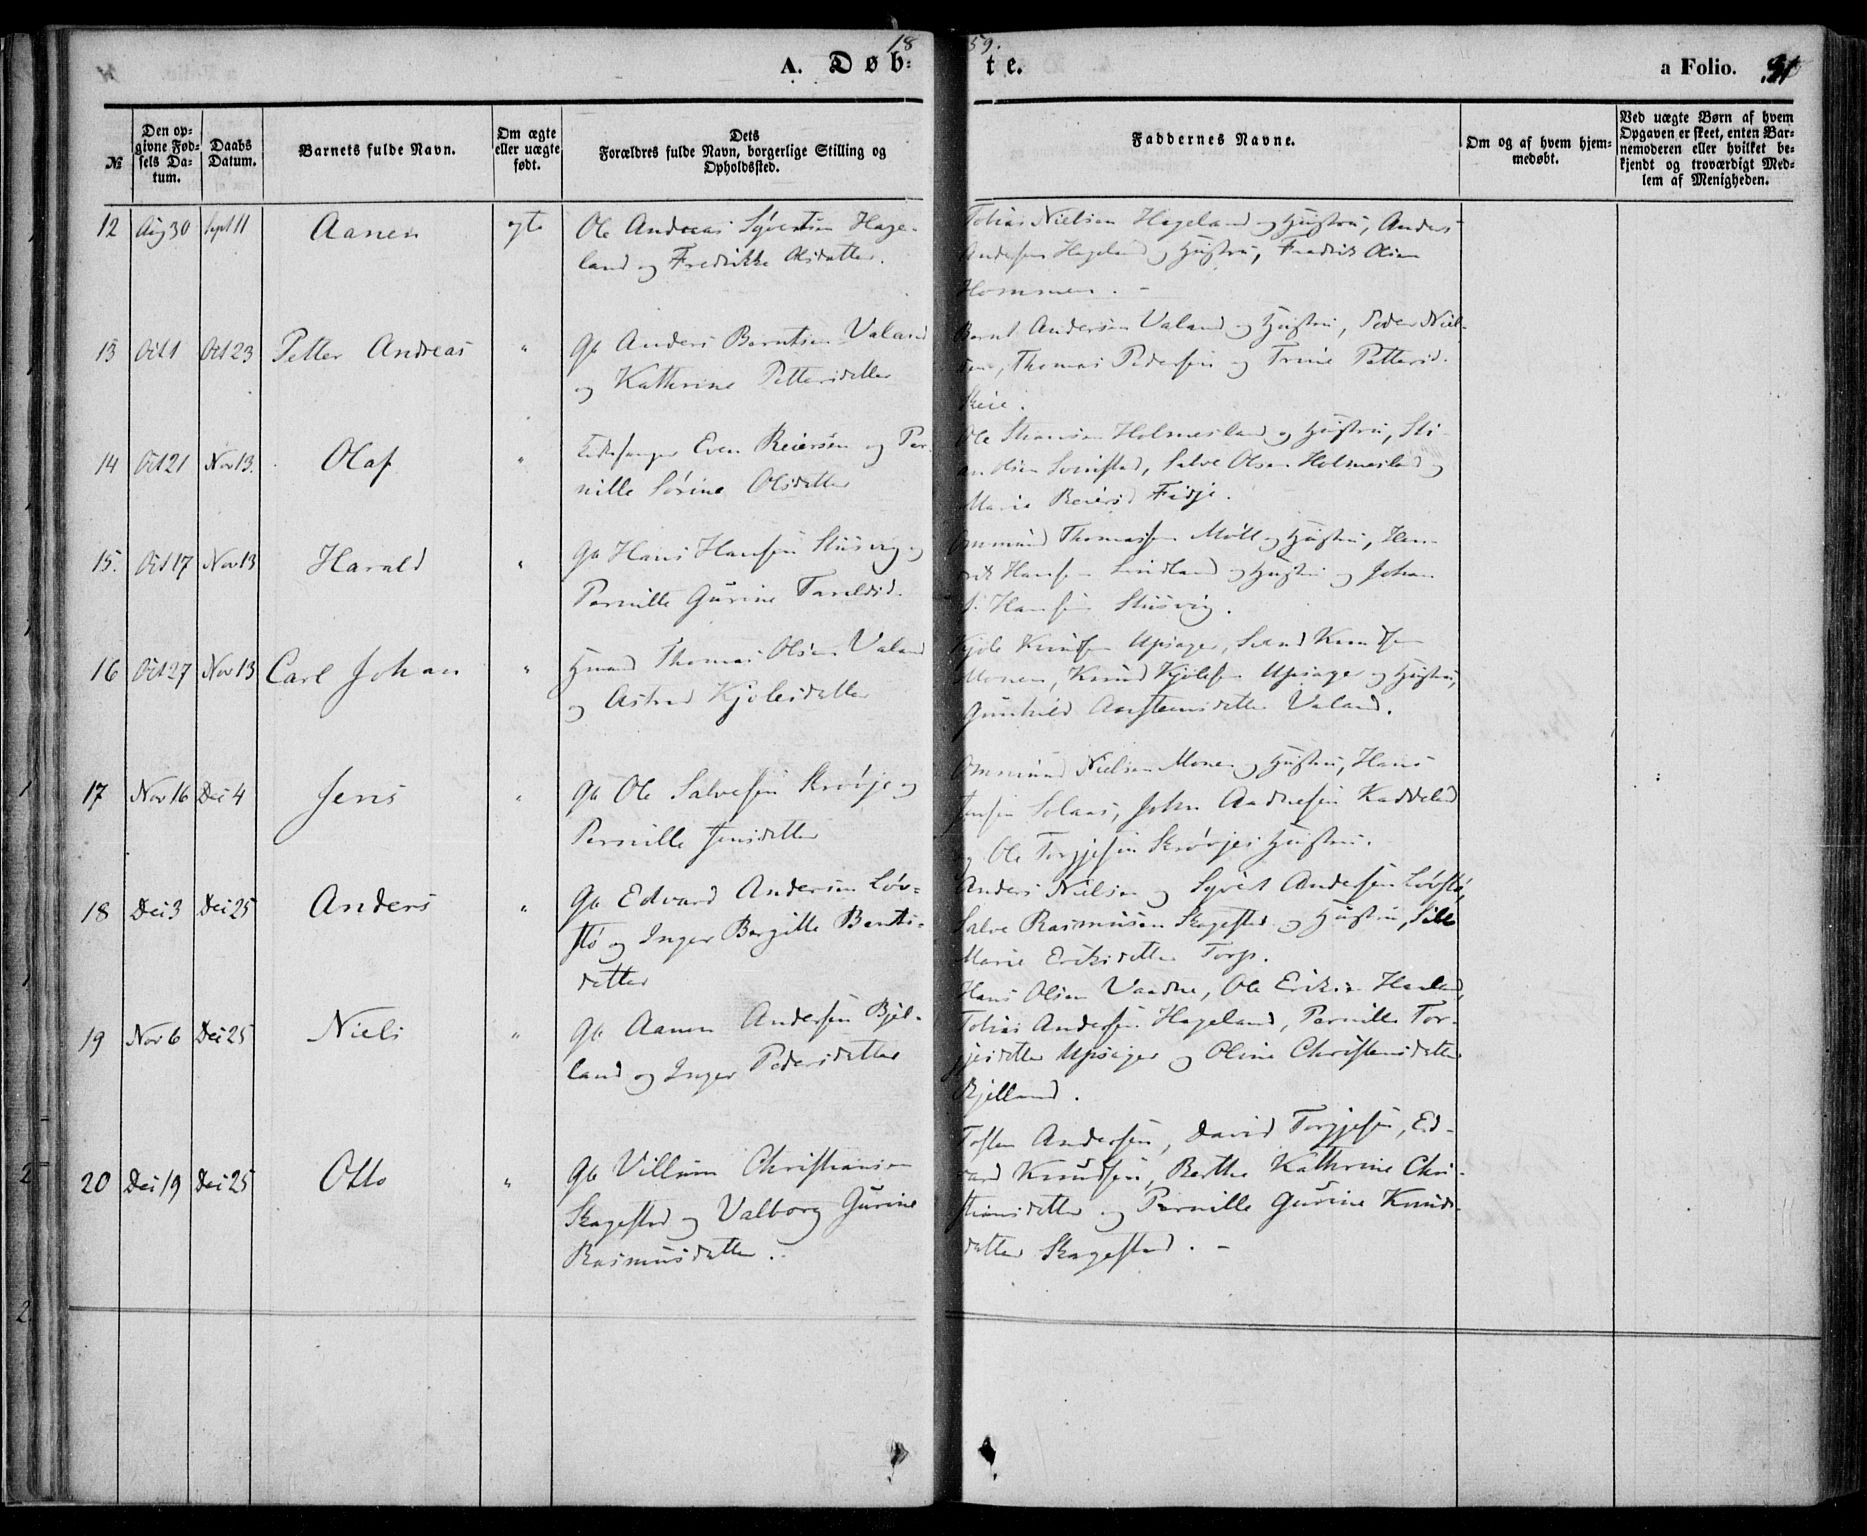 1859.
A. Døbte.
a Folio. 31
№
Den opgivne Fødsels Datum.
Daabs Datum.
Barnets fulde Navn.
Om ægte eller uægte født.
Dets Forældres fulde Navn, borgerlige Stilling og Opholdssted.
Faddernes Navne.
Om og af hvem hjemmedøbt.
Ved uægte Børn af hvem Opgaven er skeet, enten Barnemoderen eller hvilket bekjendt og troværdigt Medlem af Menigheden.
12 Aug 30 Sept 11 Aanen ægte
Ole Andreas Syvertsen Hage-
land og Fredrikke Olsdatter.
Tobias Nielsen Hageland og Hustru, Anders
Andersen Hageland og Hustru, Fredrik Olsen
Hommen. -
13 Oct 1 Oct 23 Petter Andreas "
Gb Anders Berntsen Valand
og Kathrine Pettersdatter
Bernt Andersen Valand og Hustru, Peder Niel-
sen, Thomas Pedersen og Trine Pettersd.
Skeie.
14 Oct 21 Nov 13. Olaf "
Even Reiersen og Per-
nille Sørine Olsdatter
Ole Holmesland og Hustru, Sti-
an Olsen Salve Olsen Holmesland og
Marie Reiersd Fidje.
15. Oct 17 Nov 13 Harald "
Gb Hans Hansen Stusvig og
Pernille Gurine Tareldsd.
Ommund Thomassen Møll og Hustru, Hen-
rik Hansen Lindland og Hustru og Johan
Hansen Stusvig.
16 Oct 27 Nov 13 Carl Johan "
Husmd Thomas Olsen Valand
og Astrid Kjølesdatter
Kjøle Knudsen Upsager, Svend Knudsen
Monen, Knud Kjølesen Upsager og Hustru,
Gunhild Aanstensdatter Valand.
17 Nov 16 Dec 4 Jens "
Gb Ole Salvesen Skrøvje og
Pernille Jensdatter
Ommund Nielsen Monen og Hustru, Hans
Jensen Solaas, John Andresen Kaddeland
og Ole Torgjesen Skrøvjes Hustru.
18 Dec 3 Dec 25 Anders "
Gb Edvard Andersen Løv-
stø og Inger Bergitte Bents-
datter
Anders Nielsen og Syvert Andersen Løvstø,
Salve Rasmusen Skagestad og Hustru, Sille
Marie Eriksdatter Torp.
19 Nov 6 Dec 25 Niels "
Gb Aanen Andersen Bjel-
land og Inger Pedersdatter
Hans Olsen Vaadne, Ole Eriksen
Tobias Andersen Hageland, Pernille Tor-
gjesdatter Upsager og Oline Christensdatter
Bjelland.
20 Dec 19 Dec 25 Otto "
Gb Villum Christiansen
Skagestad og Valborg Gurine
Rasmusdatter. -
Tosten Andersen, David Torgjesen, Ed-
vard Knudsen, Berthe Kathrine Chri-
stiansdatter og Pernille Gurine Knuds-
datter Skagestad. -